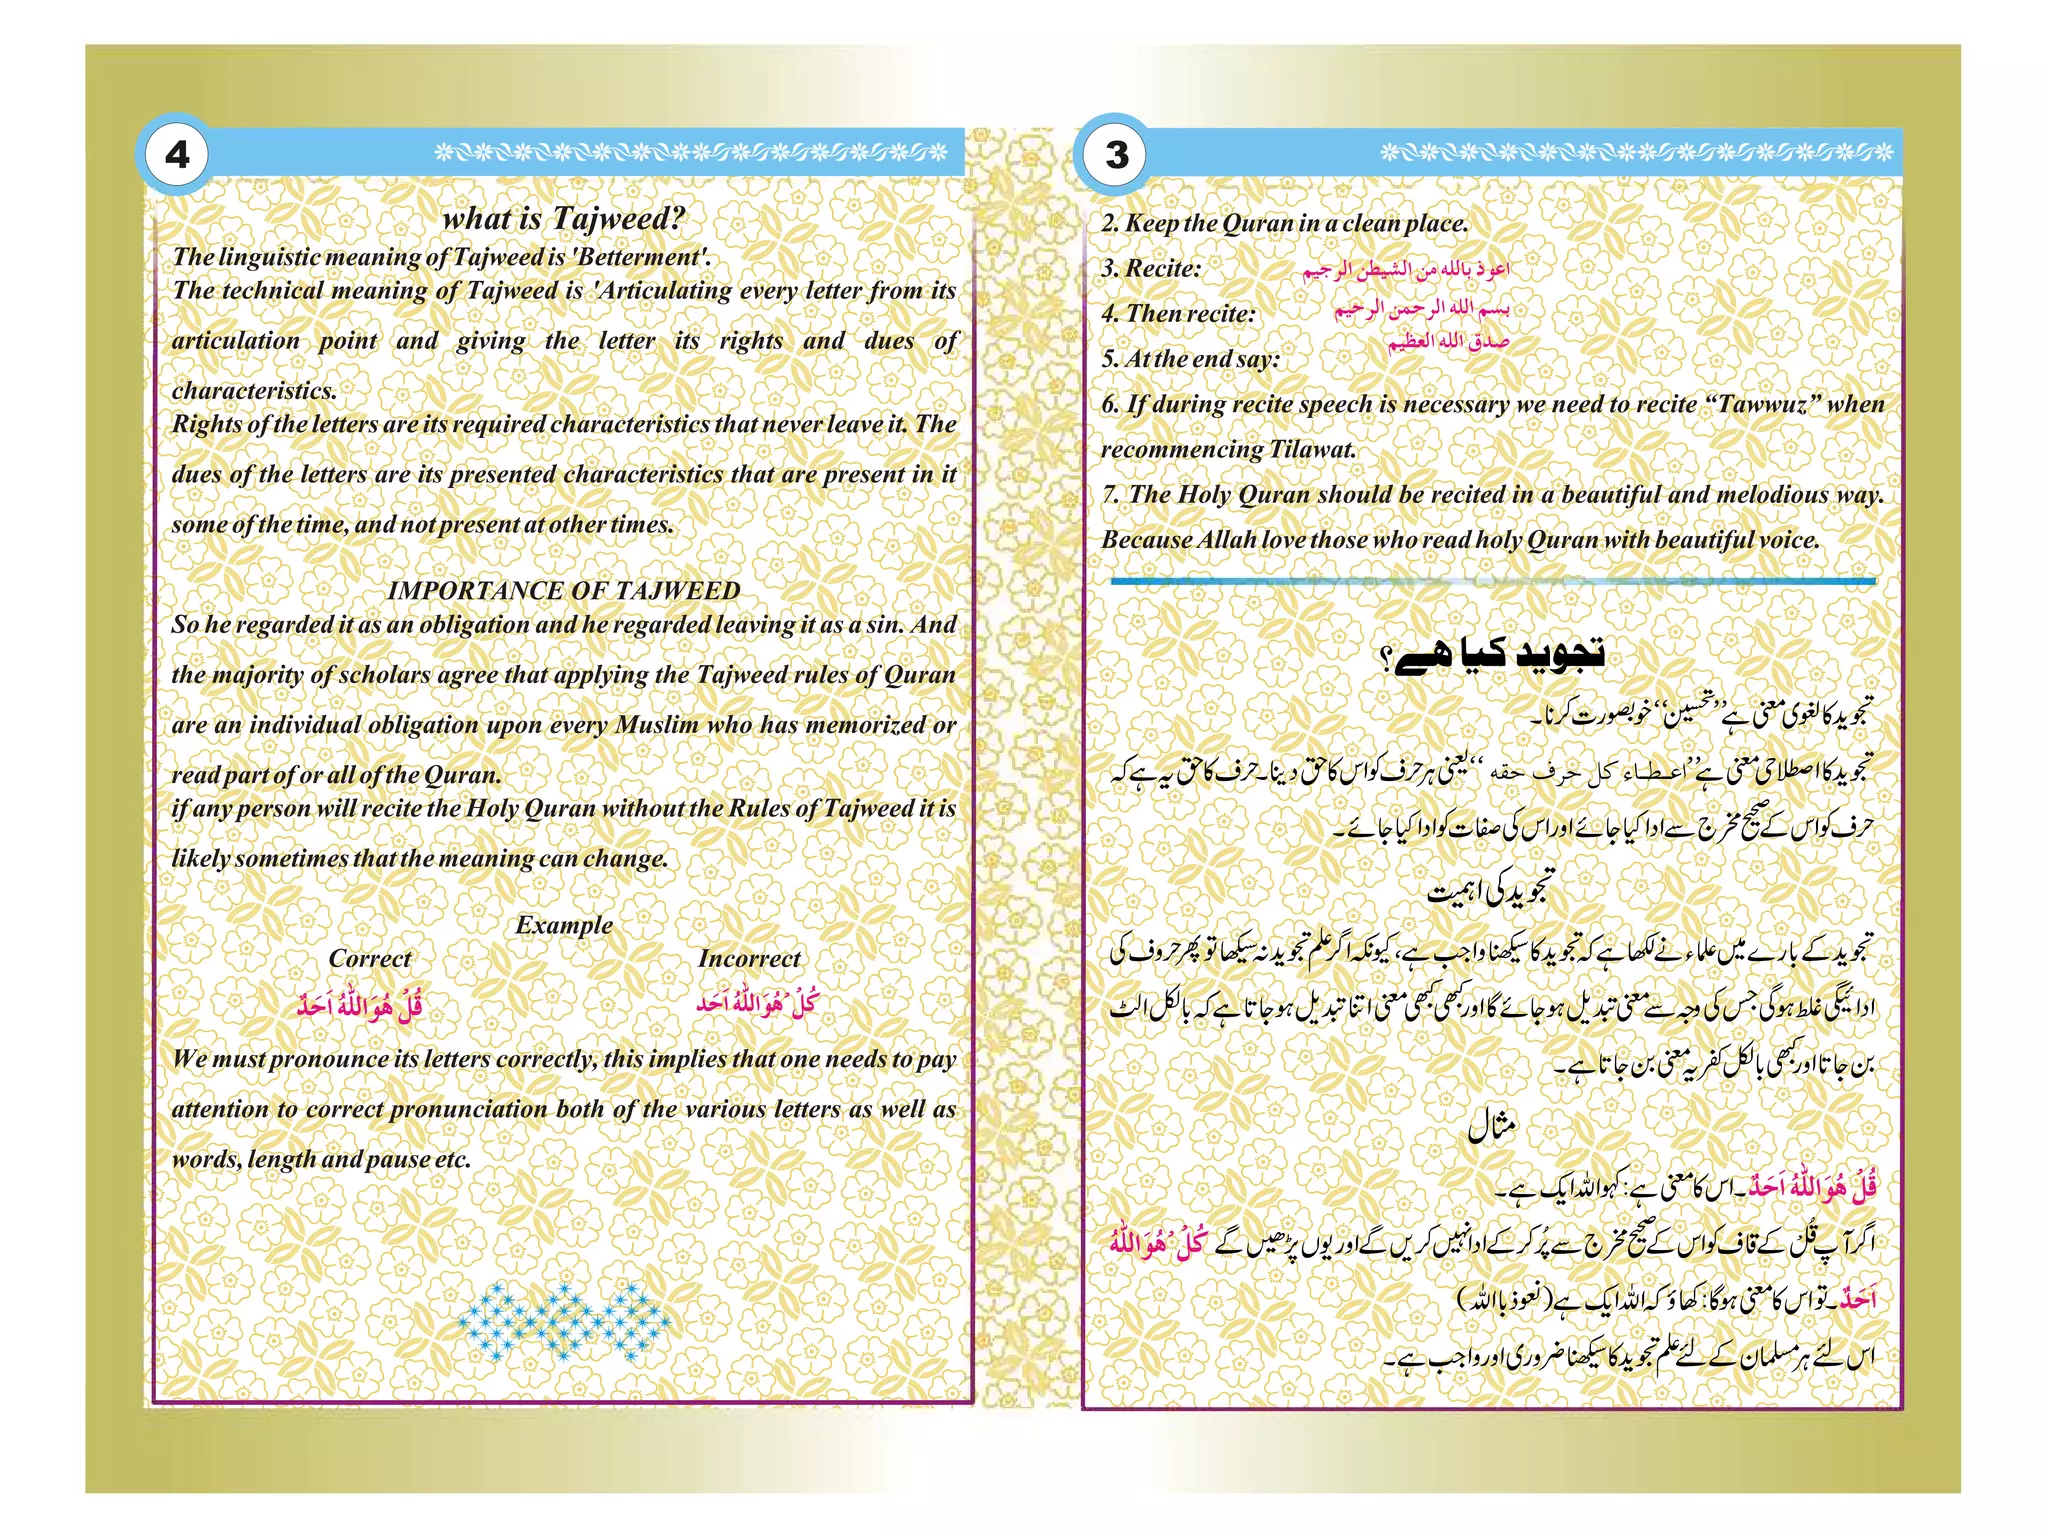 3
2. Keep the Quran in a clean place.
3. Recite: اعوذ بالله من الشیطن الرجیم
4. Then recite: بسم الله الرحمن الرحیم
5. At the end say: صدق الله العظیم
6. If during recite speech is necessary we need to recite “Tawwuz” when
recommencing Tilawat.
7. The Holy Quran should be recited in a beautiful and melodious way.
Because Allah love those who read holy Quran with beautiful voice.
تجوید کیا ھے؟
تجوید کا لغوی معنی ہے ’’تحسین‘‘ خوبصورت کرنا۔
تجوید کا اصطلاحی معنی ہے ’’اعطاء کل حرف حقه‘‘ یعنی ہر حرف کو اس کا حق دینا۔ حرف کا حق یہ ہے کہ
حرف کو اس کے صحیح مخرج سے ادا کیا جائے اور اس کی صفات کو ادا کیا جائے۔
تجوید کی اہمیت
تجوید کے بارے میں علماء نے لکھا ہے کہ تجوید کا سیکھنا واجب ہے، کیونکہ اگر علم تجوید نہ سیکھا تو پھر حروف کی
ادائیگی غلط ہوگی جس کی وجہ سے معنی تبدیل ہو جائے گا اور کبھی کبھی معنی اتنا تبدیل ہو جاتا ہے کہ بالکل الٹ
بن جاتا اور کبھی بالکل کفریہ معنی بن جاتا ہے۔
مثال
قُلْ هُوَ اللّٰهُ اَحَدٌ۔ اس کا معنی ہے: کہو اللہ ایک ہے۔
اگر آپ قُلْ کے قاف کو اس کے صحیح مخرج سے پُر کر کے ادا نہیں کریں گے اور یوں پڑھیں گے كُلْ هُوَ اللّٰهُ
اَحَدٌ۔ تو اس کا معنی ہوگا: کھاؤ کہ اللہ ایک ہے (نعوذ باللہ)
اس لئے ہر مسلمان کے لئے علم تجوید کا سیکھنا ضروری اور واجب ہے۔
4
what is Tajweed?
The linguistic meaning of Tajweed is 'Betterment'.
The technical meaning of Tajweed is 'Articulating every letter from its
articulation point and giving the letter its rights and dues of
characteristics.
Rights of the letters are its required characteristics that never leave it. The
dues of the letters are its presented characteristics that are present in it
some of the time, and not present at other times.
IMPORTANCE OF TAJWEED
So he regarded it as an obligation and he regarded leaving it as a sin. And
the majority of scholars agree that applying the Tajweed rules of Quran
are an individual obligation upon every Muslim who has memorized or
read part of or all of the Quran.
if any person will recite the Holy Quran without the Rules of Tajweed it is
likely sometimes that the meaning can change.
Example
Correct Incorrect
قُلْ هُوَ اللّٰهُ اَحَدٌ كُلْ هُوَ اللّٰهُ اَحَد
We must pronounce its letters correctly, this implies that one needs to pay
attention to correct pronunciation both of the various letters as well as
words, length and pause etc.